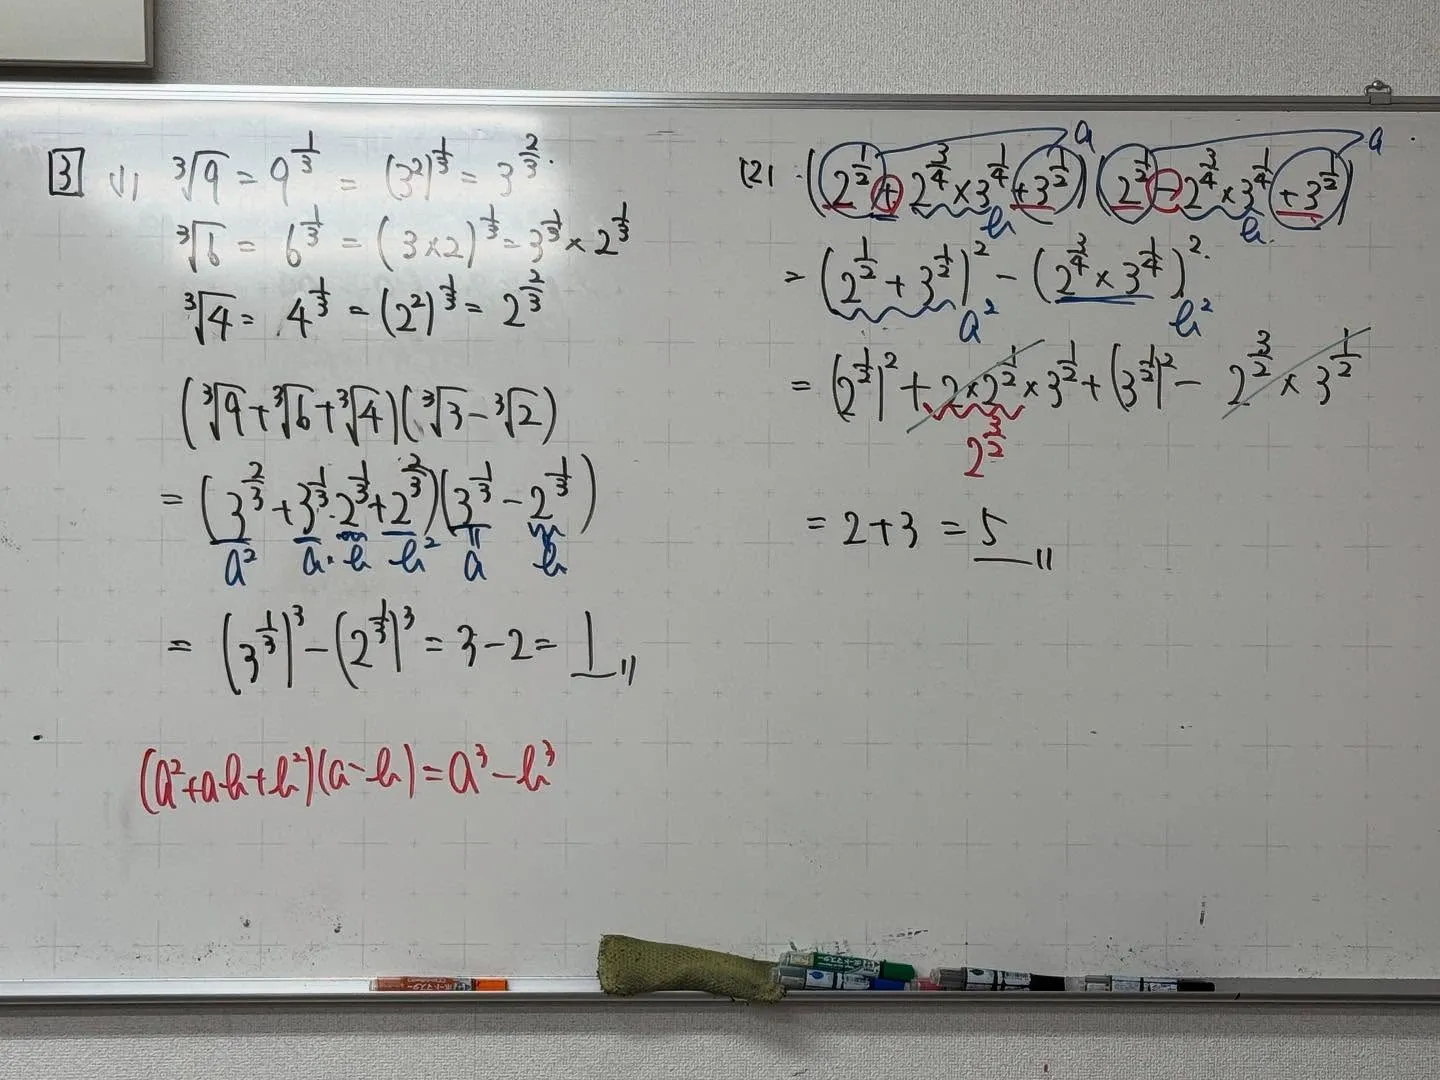 3 (1) ∛9 = 9^(1/3) = (3²)^(1/3) = 3^(2/3).
∛6 = 6^(1/3) = (3×2)^(1/3) = 3^(1/3) × 2^(1/3)
∛4 = 4^(1/3) = (2²)^(1/3) = 2^(2/3)
(∛9+∛6+∛4)(∛3-∛2)
= (3^(2/3) + 3^(1/3)·2^(1/3) + 2^(2/3))(3^(1/3) - 2^(1/3))
a² a·b b² a b
= (3^(1/3))³ - (2^(1/3))³ = 3-2 = 1
(a²+ab+b²)(a-b) = a³-b³
a a
(2) (2^(1/2) + 2^(3/4) × 3^(1/4) + 3^(1/2))(2^(1/2) - 2^(3/4) × 3^(1/4) + 3^(1/2))
b b
= (2^(1/2) + 3^(1/2))² - (2^(3/4) × 3^(1/4))²
a² b²
= (2^(1/2))² + 2×2^(1/2) × 3^(1/2) + (3^(1/2))² - 2^(3/2) × 3^(1/2)
2^(3/2)
= 2+3 = 5